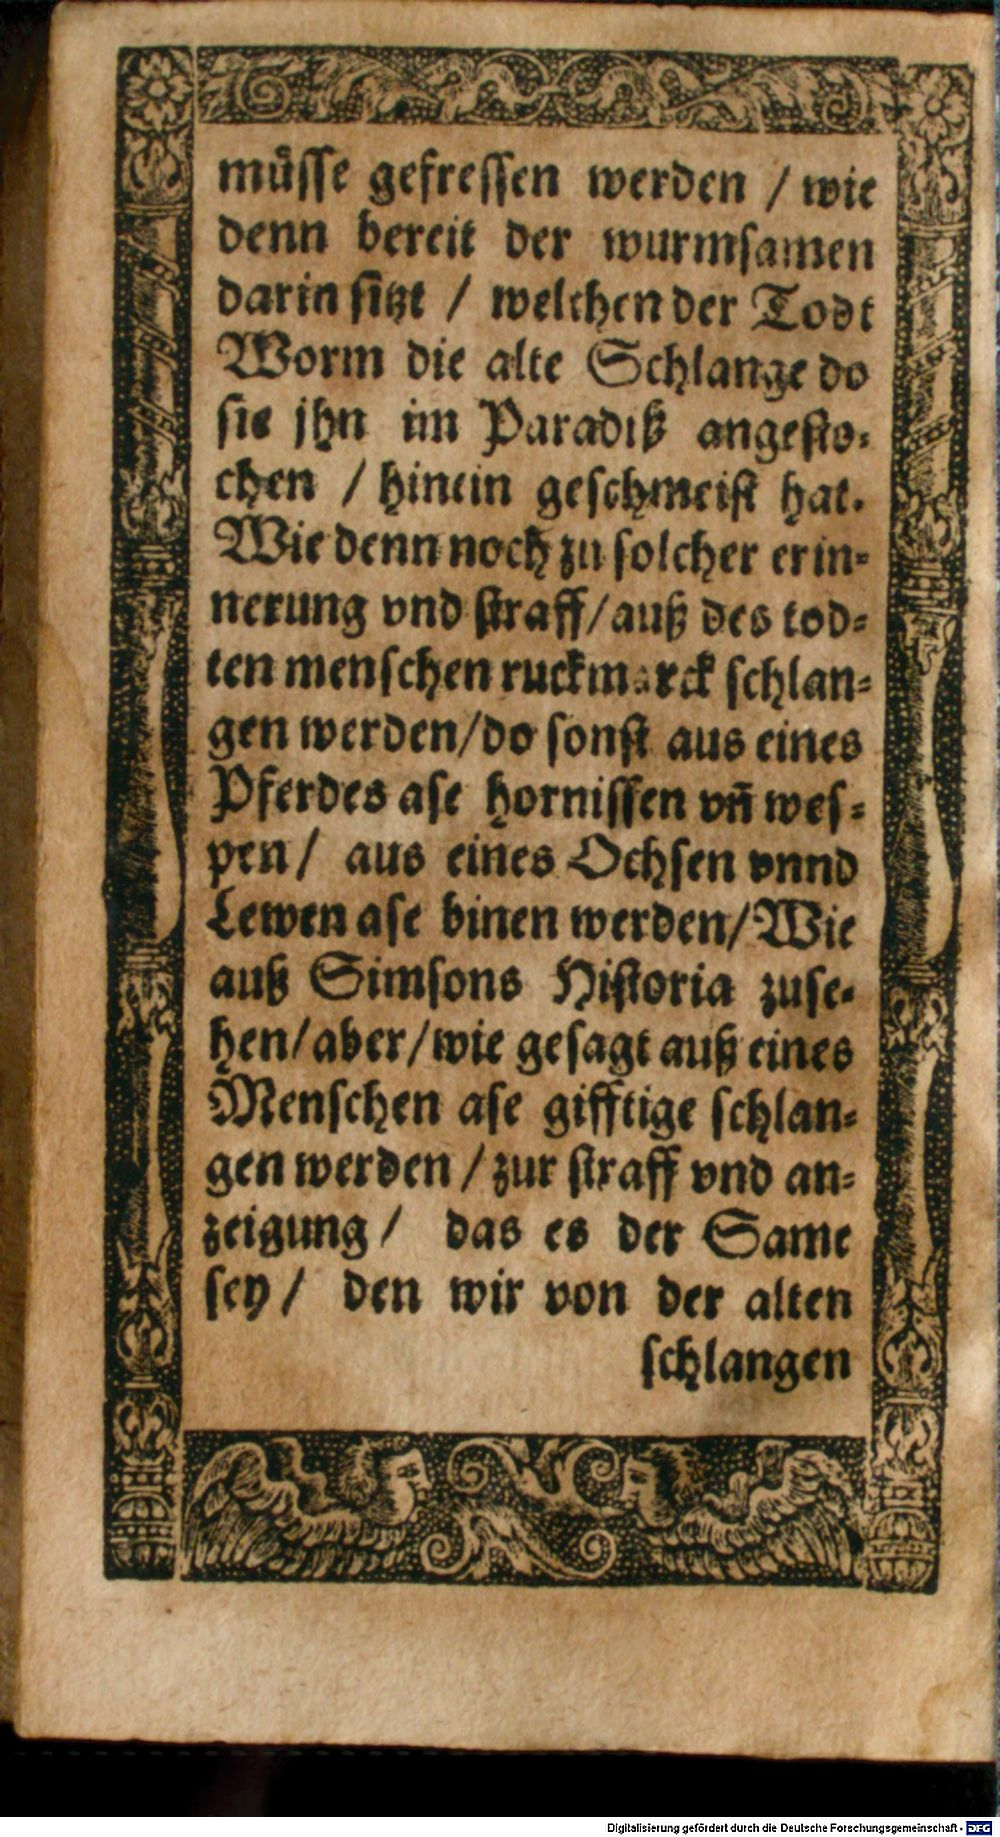 müſſe gefreſſen werden / wie
denn bereit der wurmſamen
darin ſitzt / welchen der Todt
Worm die alte Schlange do
ſie jhn im Paradiß angeſto⸗
chen / hinein geſchmeiſt hat.
Wie denn noch zu ſolcher erin⸗
nerung vnd ſtraff / auß des tod⸗
ten menſchen ruckmarck ſchlan⸗
gen werden / do ſonſt aus eines
Pferdes aſe horniſſen vñ weſ⸗
pen / aus eines Ochſen vnnd
Lewen aſe binen werden / Wie
auß Simſons Hiſtoria zuſe⸗
hen / aber / wie geſagt auß eines
Menſchen aſe gifftige ſchlan⸗
gen werden / zur ſtraff vnd an⸗
zeigung / das es der Same
ſey / den wir von der alten
ſchlangen
Digitalisierung gefördert durch die Deutsche Forschungsgemeinschaft - DFG